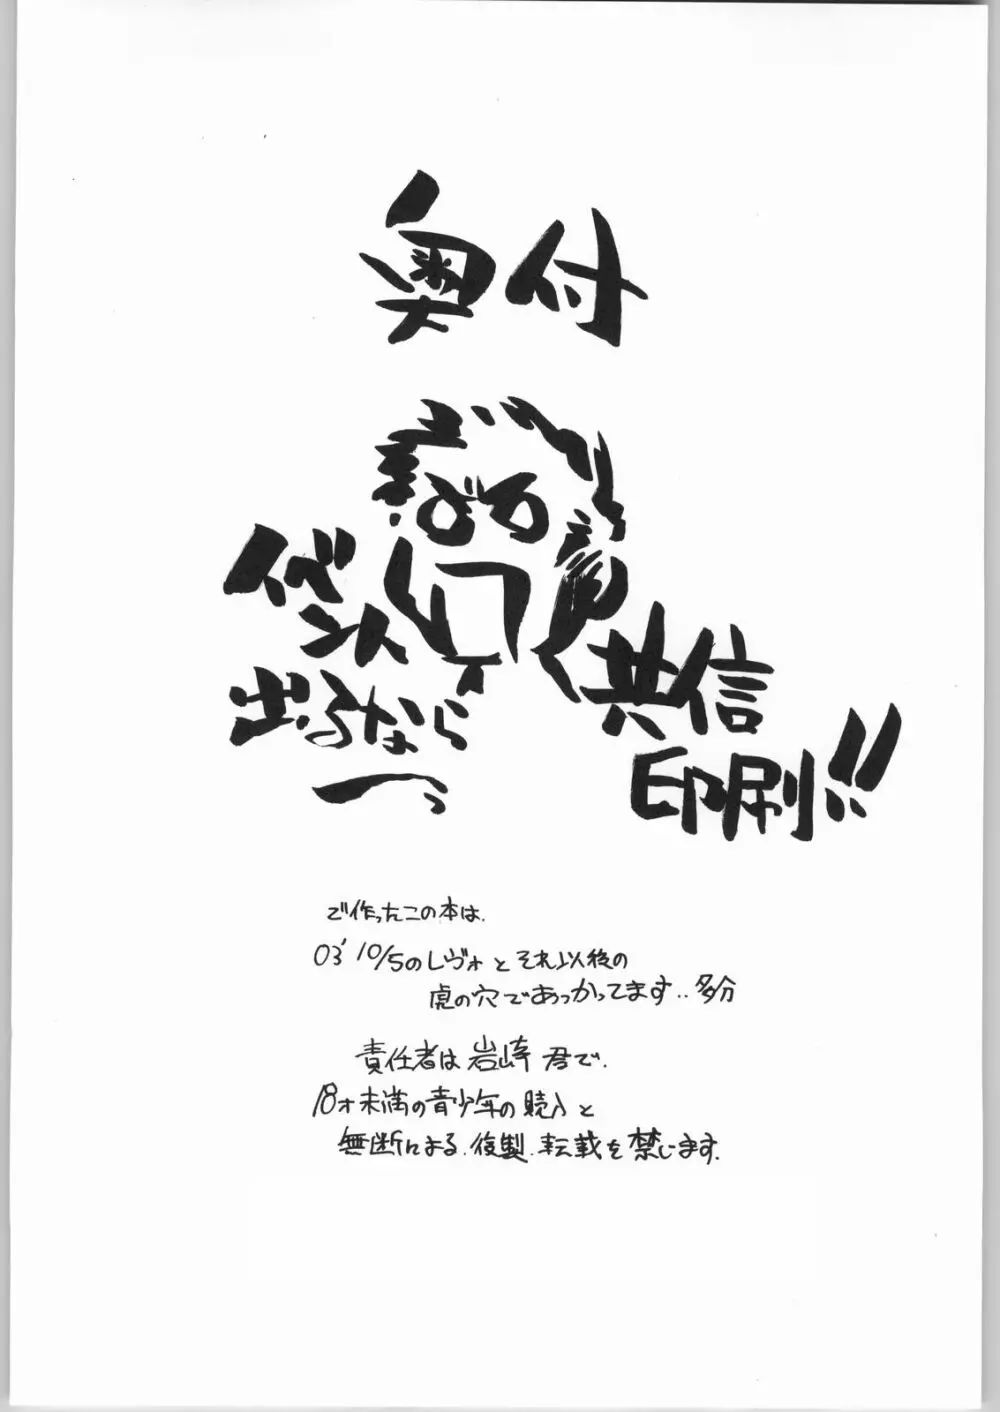 奥付
イベント
出るなら
共信
印刷!!
で作ったこの本は、
03' 10/5のレヴォとそれ以後の
虎の穴であつかってます‥多分
責任者は岩崎君で、
18才未満の青少年の購入と
無断による、複製、転載を禁じます。